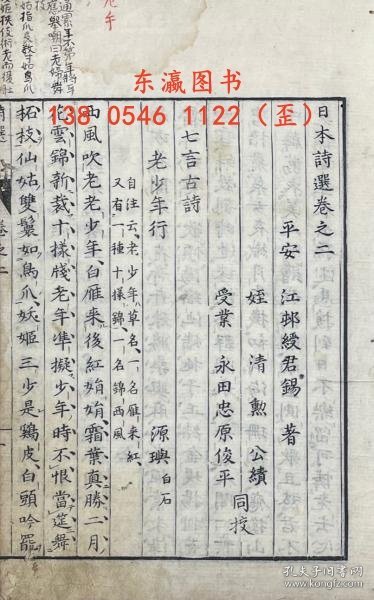 东瀛图书
138 0546 1122（歪）
日本詩選卷之二
平安 江邨綬君錫 著
姪 清勲 公績
受業 永田忠原俊平 同挍
七言古詩
老少年行 源璵 白石
自注云、老少年草名、一名雁来紅、
又有一種十様錦、一名錦西風
西風吹老老少年、白雁来後紅娟娟、霜葉真勝二月
花、雲錦新裁十樣牋、老年準擬少年時、不恨當筵舞
柘枝、仙姑雙鬟如鳥爪、妖姬三少是鷄皮、白頭吟罷
孔夫子旧书网